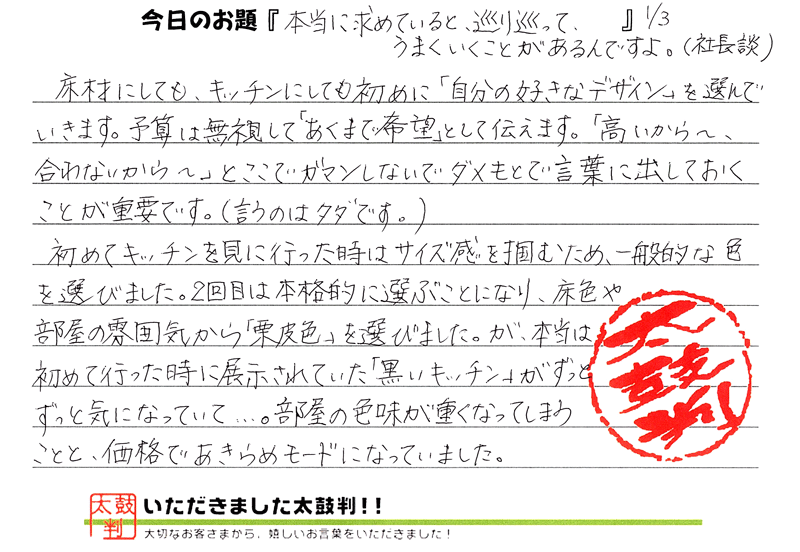 今日のお題『本当に求めていると、巡り巡って、 』 1/3
うまくいくことがあるんですよ。(社長談)
床材にしても、キッチンにしても初めに「自分の好きなデザイン」を選んで
いきます。予算は無視して「あくまで希望」として伝えます。「高いから〜、
合わないから〜」とここでガマンしないでダメもとで言葉に出しておく
ことが重要です。(言うのはタダです。)
初めてキッチンを見に行った時はサイズ感を掴むため、一般的な色
を選びました。2回目は本格的に選ぶことになり、床色や
部屋の雰囲気から「栗皮色」を選びました。が、本当は
初めて行った時に展示されていた「黒いキッチン」がずっと
ずっと気になっていて…。部屋の色味が重くなってしまう
ことと、価格であきらめモードになっていました。
太鼓判
太鼓判
いただきました太鼓判!!
大切なお客さまから、嬉しいお言葉をいただきました!